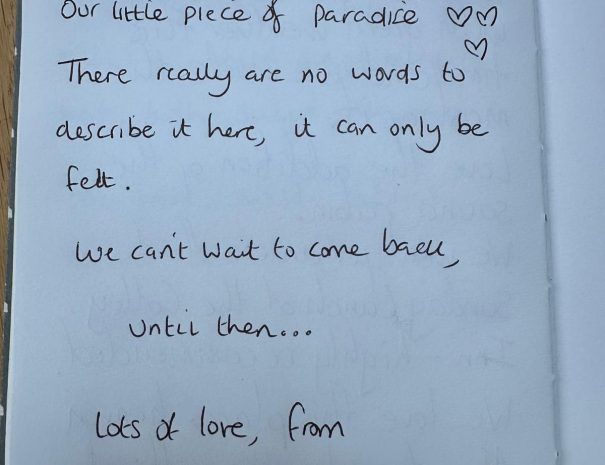 Our little piece of Paradise ♡♡
♡
There really are no words to
describe it here, it can only be
felt.
We can't wait to come back,
until then...
Lots of love, from